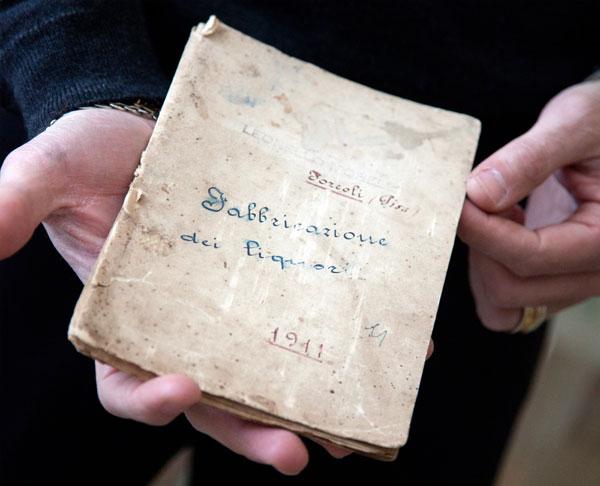 Forcoli (Pisa)
Fabbricazione
dei liquori
1911